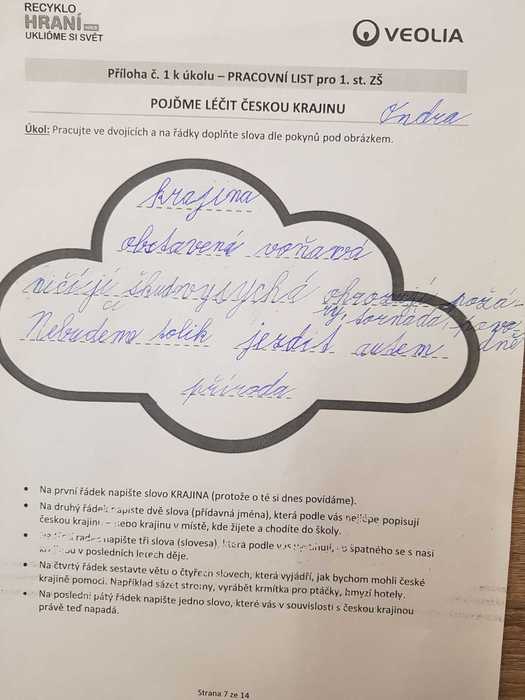 RECYKLO
HRANÍ
UKLIĎME SI SVĚT
VEOLIA
Příloha č. 1 k úkolu – PRACOVNÍ LIST pro 1. st. ZŠ
POJĎME LÉČIT ČESKOU KRAJINU
Indra
Úkol: Pracujte ve dvojicích a na řádky doplňte slova dle pokynů pod obrázkem.
krajina
obstavená voňavá
ničí jí vysychá ohrožují požá-
ry, tornáda, povo-
dně
Nebudem tolik jezdit autem
příroda
• Na první řádek napište slovo KRAJINA (protože o té si dnes povídáme).
• Na druhý řádek napište dvě slova (přídavná jména), která podle vás nejlépe popisují
českou krajinu – nebo krajinu v místě, kde žijete a chodíte do školy.
• napište tři slova (slovesa), která podle vás špatného se s naší
v posledních letech děje.
• Na čtvrtý řádek sestavte větu o čtyřech slovech, která vyjádří, jak bychom mohli české
krajině pomoci. Například sázet stromy, vyrábět krmítka pro ptáčky, hmyzí hotely.
• Na poslední pátý řádek napište jedno slovo, které vás v souvislosti s českou krajinou
právě teď napadá.
Strana 7 ze 14